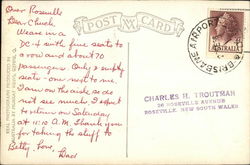 Over Roseville
Dear Chuck,
We are in a
DC-4 with five seats to
a row and about 70
passengers. Only 2 empty
seats - one next to me
I am on the aisle so do
not see much. I expect
to return on Saturday
at 11:10 A.M. Thank you
for taking the stuff to
Betty. Love, Dad
POST CARD
BRISBANE AIRPORT
AUSTRALIA
CHARLES H. TROUTMAN
26 ROSEVILLE AVENUE
ROSEVILLE, NEW SOUTH WALES